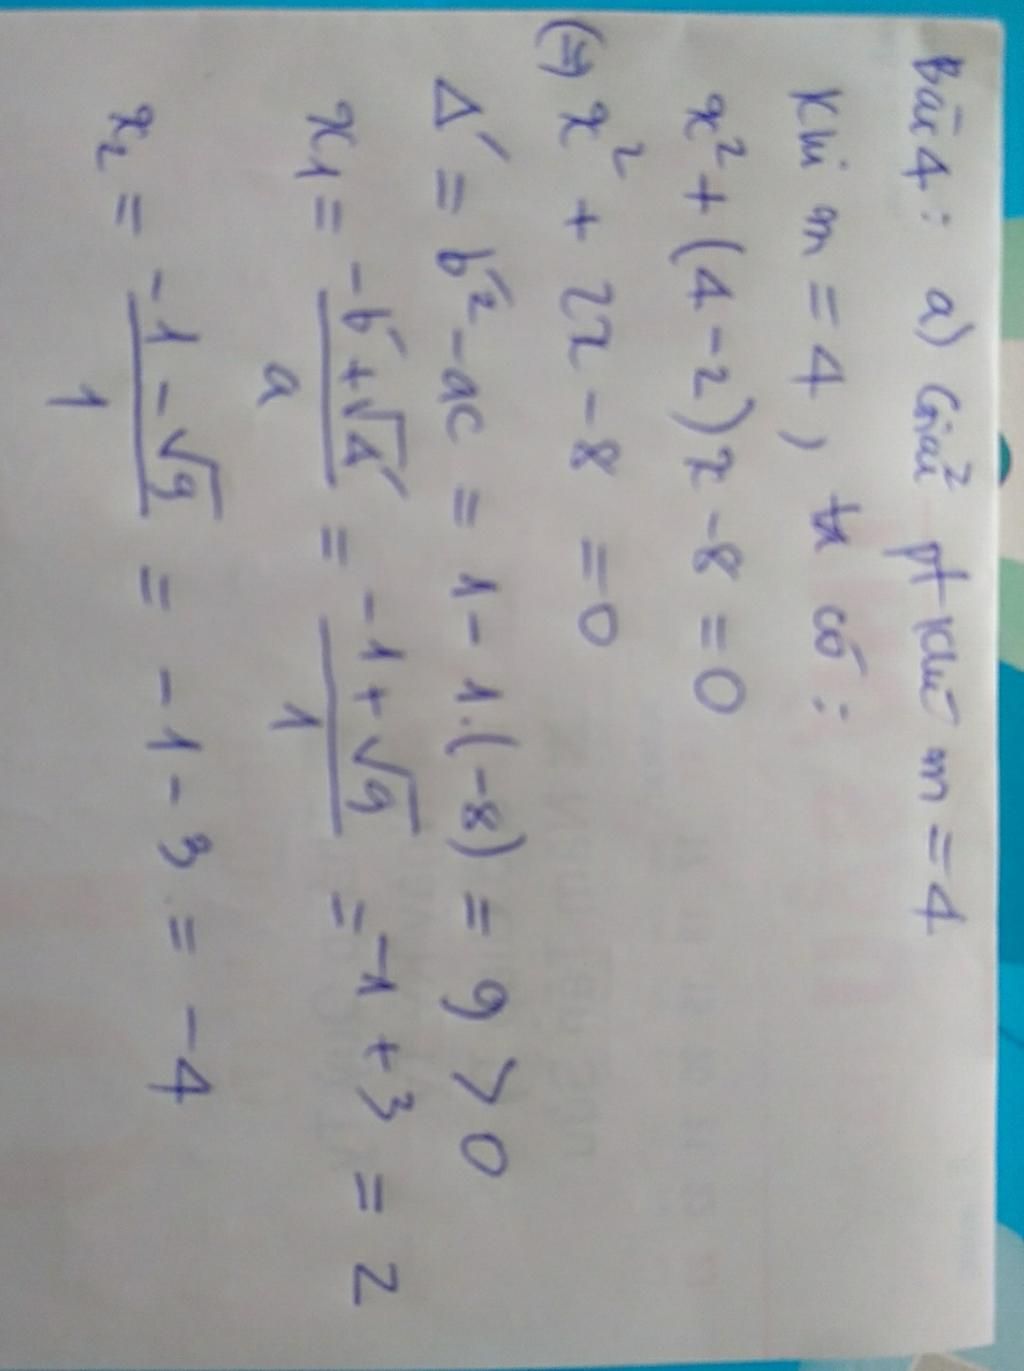 Bài 4: a) Giải pt khi m = 4
Khi m = 4, ta có:
x² + (4 - 2)x - 8 = 0
(=) x² + 2x - 8 = 0
Δ' = b'² - ac = 1 - 1.(-8) = 9 > 0
x₁ = (-b' + √Δ')/a = (-1 + √9)/1 = -1 + 3 = 2
x₂ = (-1 - √9)/1 = -1 - 3 = -4